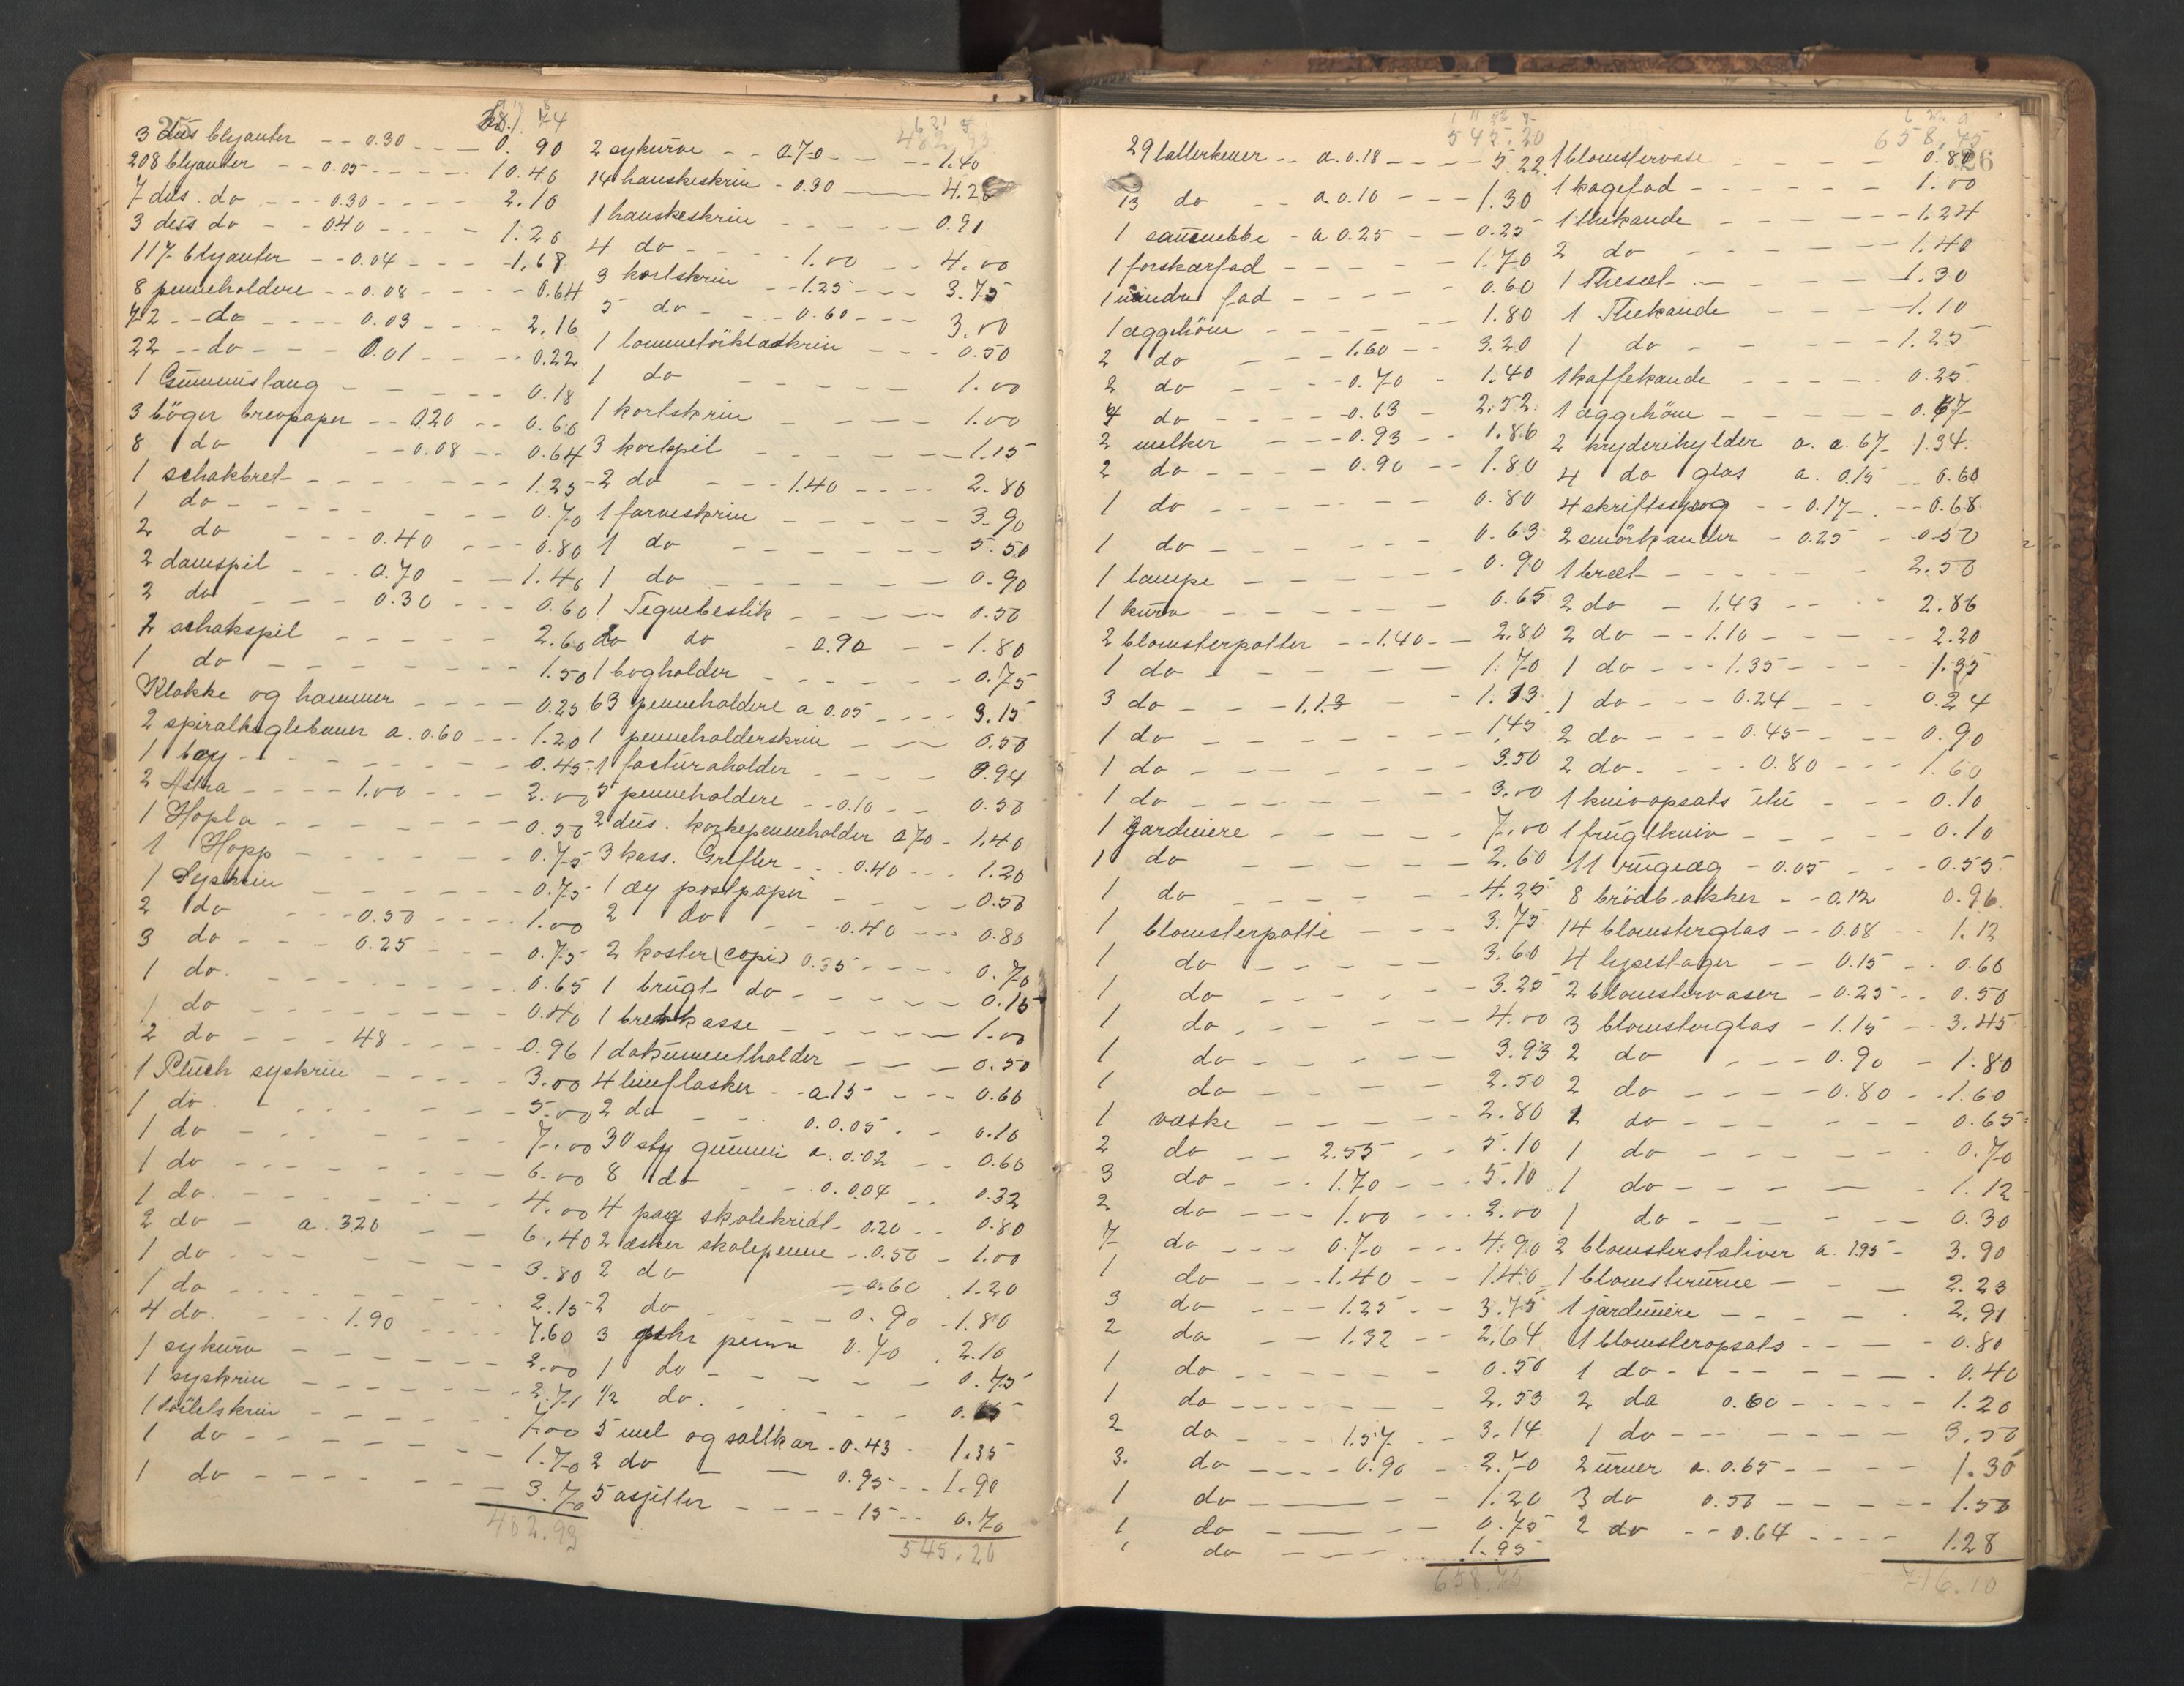 3 dus blyanter -- 0.30 --- 0.90
208 blyanter -- 0.05 ---- 10.40
7 dus. do --- 0.30 ---- 2.10
3 dus do -- 040 --- 1.20
117 blyanter -- 0.04 --- 1.68
8 penneholdere -- 0.08 --- 0.64
72 -- do ---- 0.03 ---- 2.16
22 -- do --- 0.01 ---- 0.22
1 Gummislang ----- 0.18
3 böger brevpaper -- 0.20 -- 0.60
8 do -- 0.08 -- 0.64
1 schakbret ------- 1.25
1 do ------- 0.70
2 do --- 0.40 --- 0.80
2 damspil --- 0.70 -- 1.40
2 do --- 0.30 --- 0.60
2 schakspil ----- 2.60
1 do ------- 1.50
Klokke og hammer ---- 0.25
2 spiralkeglebaner a. 0.60 --- 1.20
1 ------- 0.45
2 ---- 1.00 --- 2.00
1 Hopla ------ 0.50
1 Hopp ------ 0.75
1 Syskrin ------ 0.75
2 do --- 0.50 ---- 1.00
3 do --- 0.25 --- 0.75
1 do. -------- 0.65
1 do -------- 0.40
2 do --- 48 ---- 0.96
1 Plüch syskrin ----- 3.00
1 do. ------- 5.00
1 do ------- 7.00
1 do ------- 6.00
1 do. ------- 4.00
2 do - a. 320 -- 6.40
1 do ------ 3.80
1 do -------- 2.15
4 do. --- 1.90 ---- 7.60
1 sykurv ------ 2.00
1 syskrin ------ 2.71
1 toiletskrin ------ 7.00
1 do ------- 1.70
1 do ------- 3.70
482.93
482.93
2 sykurve -- 0.70 --- 1.40
14 hanskeskrin - 0.30 --- 4.20
1 hanskeskrin ----- 0.91
4 do --- 1.00 -- 4.00
3 kortskrin -- 1.25 --- 3.75
5 do --- 0.60 --- 3.00
1 lommetörklædskrin --- 0.50
1 do ----- 1.00
1 kortskrin ----- 1.00
3 kortspil ------ 1.15
2 do --- 1.40 ---- 2.80
1 farveskrin ----- 3.90
1 do ------ 5.50
1 do ------- 0.90
1 Tegnebestik ----- 0.50
2 do do - 0.90 -- 1.80
1 bogholder ------ 0.75
63 penneholdere a 0.05 ---- 3.15
1 penneholderskrin --- 0.50
1 facturaholder ---- 0.94
5 penneholdere -- 0.10 -- 0.50
2 dus. korkepenneholder 0.70 - 1.40
3 kass. Grifter -- 0.40 --- 1.20
1 æs postpapir ---- 0.50
2 do -- 0.40 --- 0.80
2 koster (copi) 0.35 ---- 0.70
1 brugt do ----- 0.15
1 brevkasse ----- 1.00
1 dokumentholder --- 0.50
4 limflasker -- a. 15 --- 0.60
2 do -- 0.0.05. - 0.10
30 stk gummi a. 0.02 -- 0.60
8 do -- 0.0.04 -- 0.32
4 pag skolekridt - 0.20 -- 0.80
2 æsker skolepenne -- 0.50 - 1.00
2 do -- 0.60 . 1.20
2 do ---- 0.90 - 1.80
3 penne 0.70 . 2.10
1 do ------ 0.75
1/2 do. -----
5 mel og saltkar - 0.43 - 1.35
2 do -- 0.95 -- 1.90
5 asjetter ---- 15 -- 0.70
545.20
545.20
29 tallerkener -- a. 0.18 ---- 5.22
13 do -- a. 0.10 --- 1.30
1 - a 0.25 -- 0.25
1 forskærfad ----- 1.70
1 mindre fad ---- 0.60
1 æggehöne ------ 1.80
2 do --- 1.60 -- 3.20
2 do ---- 0.70 - 1.40
4 do ---- 0.63 - 2.52
2 melker --- 0.93 -- 1.86
2 do ---- 0.90 -- 1.80
1 do ------ 0.80
1 do ------ 0.63
1 lampe ------ 0.90
1 kurv ------- 0.65
2 blomsterpotter -- 1.40 -- 2.80
1 do ------ 1.70
3 do --- 1.13 - 1.13
1 do ------- 145
1 do ------- 3.50
1 do ------- 3.00
1 jardiniere ----- 7.00
1 do ------ 2.60
1 do ------ 4.25
1 blomsterpotte --- 3.75
1 do ----- 3.60
1 do ----- 3.25
1 do ----- 4.00
1 do ----- 3.93
1 do ---- 2.50
1 vaske ----- 2.80
2 do -- 2.55 -- 5.10
3 do --- 1.70 --- 5.10
2 do --- 1.00 --- 2.00
7 do --- 0.70 --- 4.90
1 do --- 1.40 -- 1.40
3 do --- 1.25 -- 3.75
2 do -- 1.32 -- 2.64
1 do ------ 0.50
1 do ------- 2.53
2 do --- 1.57 -- 3.14
3. do ---- 0.90 - 2.70
1 do ---- 1.20
1 do ---- 0.75
1 do ---- 1.95
658.75
658.75
26
1 blomstervase ----- 0.80
1 kagefad ------ 1.00
1 thekande ----- 1.24
2 do ------ 1.40
1 Thesæt ------ 1.30
1 Thekande ---- 1.10
1 do ----- 1.25
1 kaffekande ----- 0.25
1 æggehöne ----- 0.67
2 kryderihylder a. a. 67 - 1.34.
4 do glas a. 0.15 -- 0.60
4 skriftssprog -- 0.17 -- 0.68
2 smörkander - 0.25 - 0.50
1 bræt ------ 2.50
2 do - 1.43 --- 2.86
2 do -- 1.10 ---- 2.20
1 do --- 1.35 ---- 1.35
1 do --- 0.24 --- 0.24
2 do --- 0.45 --- 0.90
2 do ---- 0.80 --- 1.60
1 knivopsats itu --- 0.10
1 frugtkniv ----- 0.10
11 rugeæg - 0.05 --- 0.55
8 brödbakker -- 0.12 0.96
14 blomsterglas -- 0.08 -- 1.12
4 lysestager -- 0.15 -- 0.60
2 blomstervaser - 0.25 -- 0.50
3 blomsterglas - 1.15 -- 3.45
2 do --- 0.90 - 1.80
2 do ---- 0.80 -- 1.60
1 do ------ 0.65
1 do ------ 0.70
1 do ----- 1.12
1 do ------ 0.30
2 blomsterstativer a. 1.95 - 3.90
1 blomsterurne --- 2.23
1 jardiniere ---- 2.91
1 blomsteropsats ---- 0.80
1 do ------- 0.40
2 do 0.60 ----- 1.20
1 do ------- 3.50
2 urner a. 0.65 ---- 1.30
3 do 0.50 ----- 1.50
2 do -- 0.64 ---- 1.28
716.10